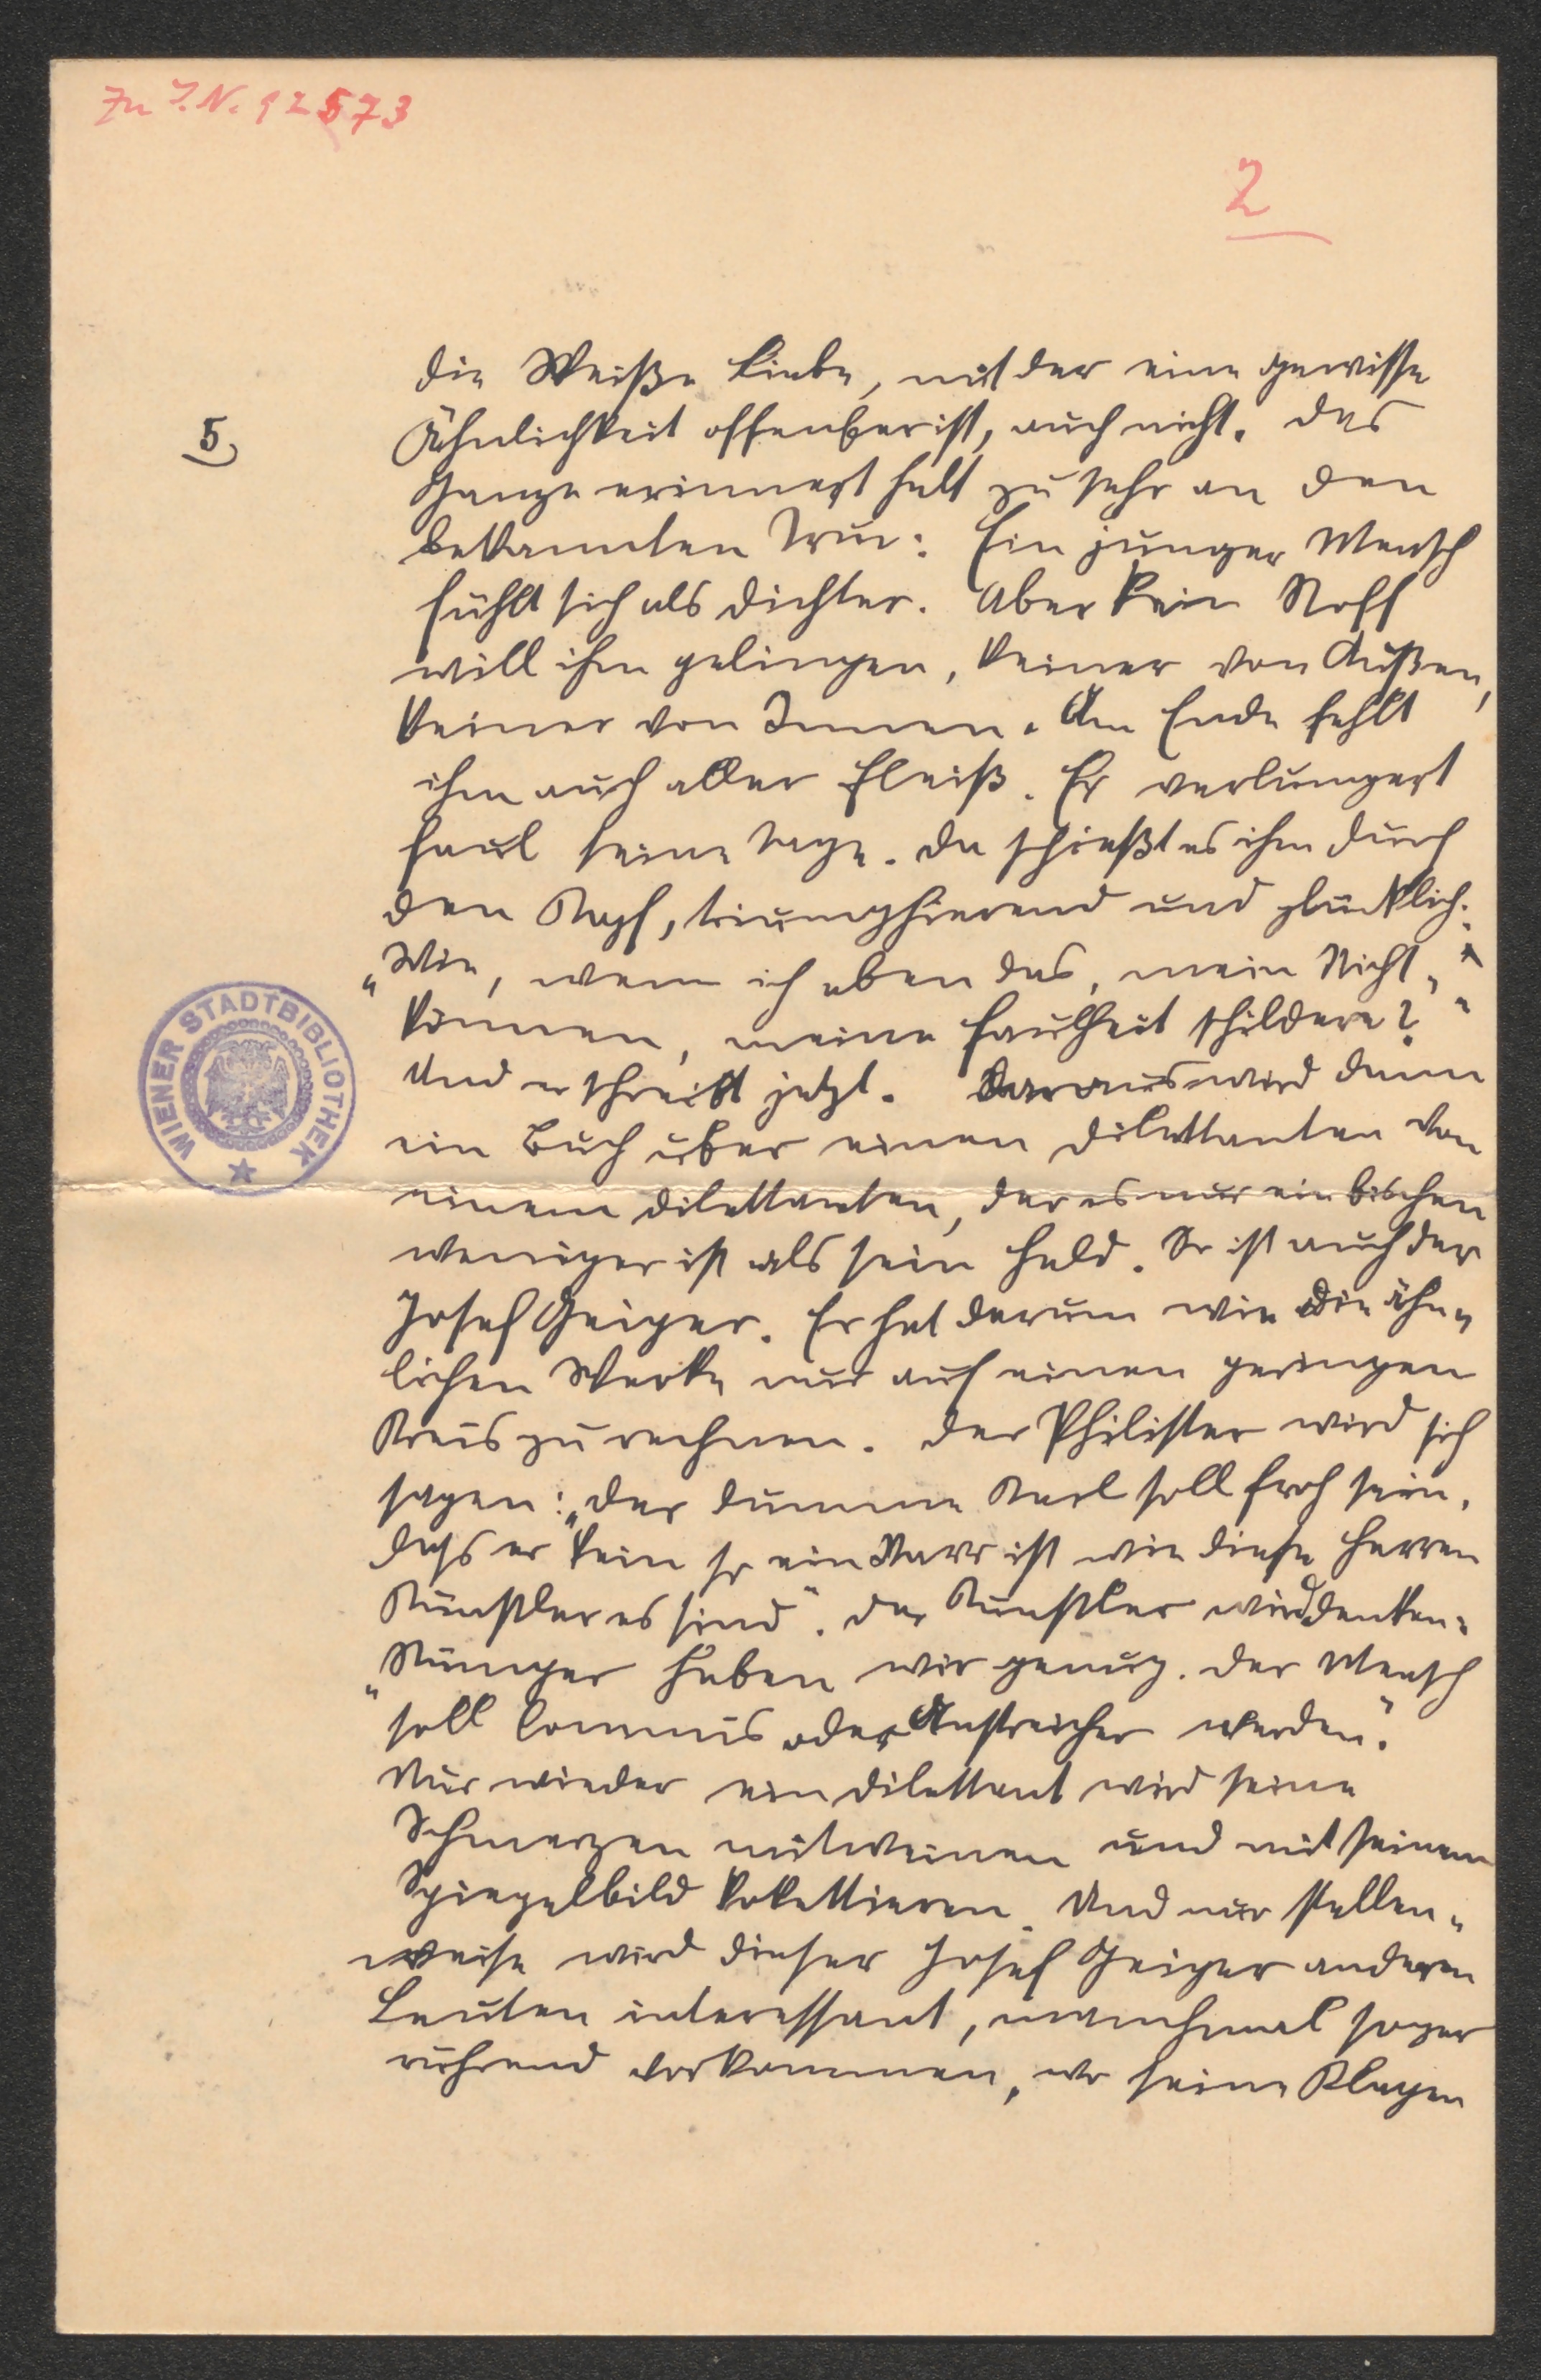 Zu I.N. 92573
2
5)
die Weiße Liebe, mit der eine gewisse
Ähnlichkeit offenbar ist, auch nicht. Das
Ganze erinnert halt zu sehr an den
bekannten Truc: Ein junger Mensch
fühlt sich als Dichter. Aber kein Stoff
will ihm gelingen, keiner von Außen,
keiner von Innen. Am Ende fehlt
ihm auch aller Fleiß. Er verlungert
faul seine Tage. Da schießt es ihm durch
den Kopf, triumphierend und glücklich:
„Wie, wenn ich eben das, mein Nicht-
können, meine Faulheit schildere?"
Und er schreibt jetzt. Daraus wird dann
ein Buch über einen Dilettanten von
einem Dilettanten, der es nur ein bischen
weniger ist als sein Held. So ist auch der
Josef Geiger. Er hat darum wie die ähn-
lichen Werke nur auf einen geringen
Kreis zu rechnen. Der Philister wird sich
sagen: „Der dumme Kerl soll froh sein,
dass er kein so ein Narr ist wie diese Herren
Künstler es sind". Der Künstler wird denken:
„Stümper haben wir genug. Der Mensch
soll Commis oder Anstreicher werden".
Nur wieder ein Dilettant wird seine
Schmerzen mitweinen und mit seinem
Spiegelbild kokettieren. Und nur stellen-
weise wird dieser Josef Geiger anderen
Leuten interessant, manchmal sogar
rührend vorkommen, wo seine Klagen
WIENER STADTBIBLIOTHEK